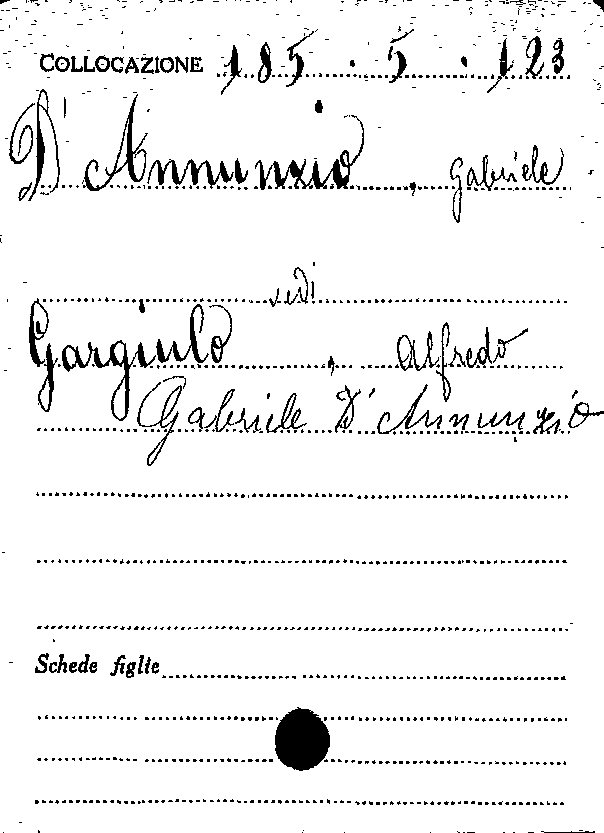 COLLOCAZIONE 185.5.123
D'Annunzio, Gabriele
vedi
Gargiulo, Alfredo
Gabriele D'Annunzio
Schede figlie